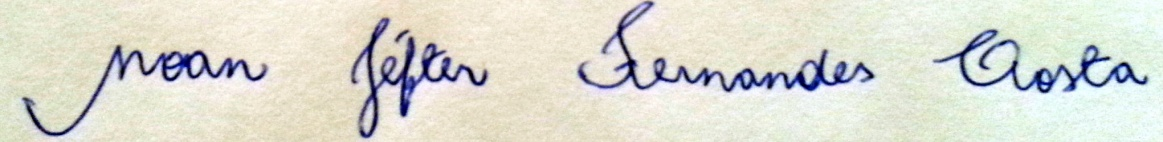 Noan Jéfter Fernandes Costa